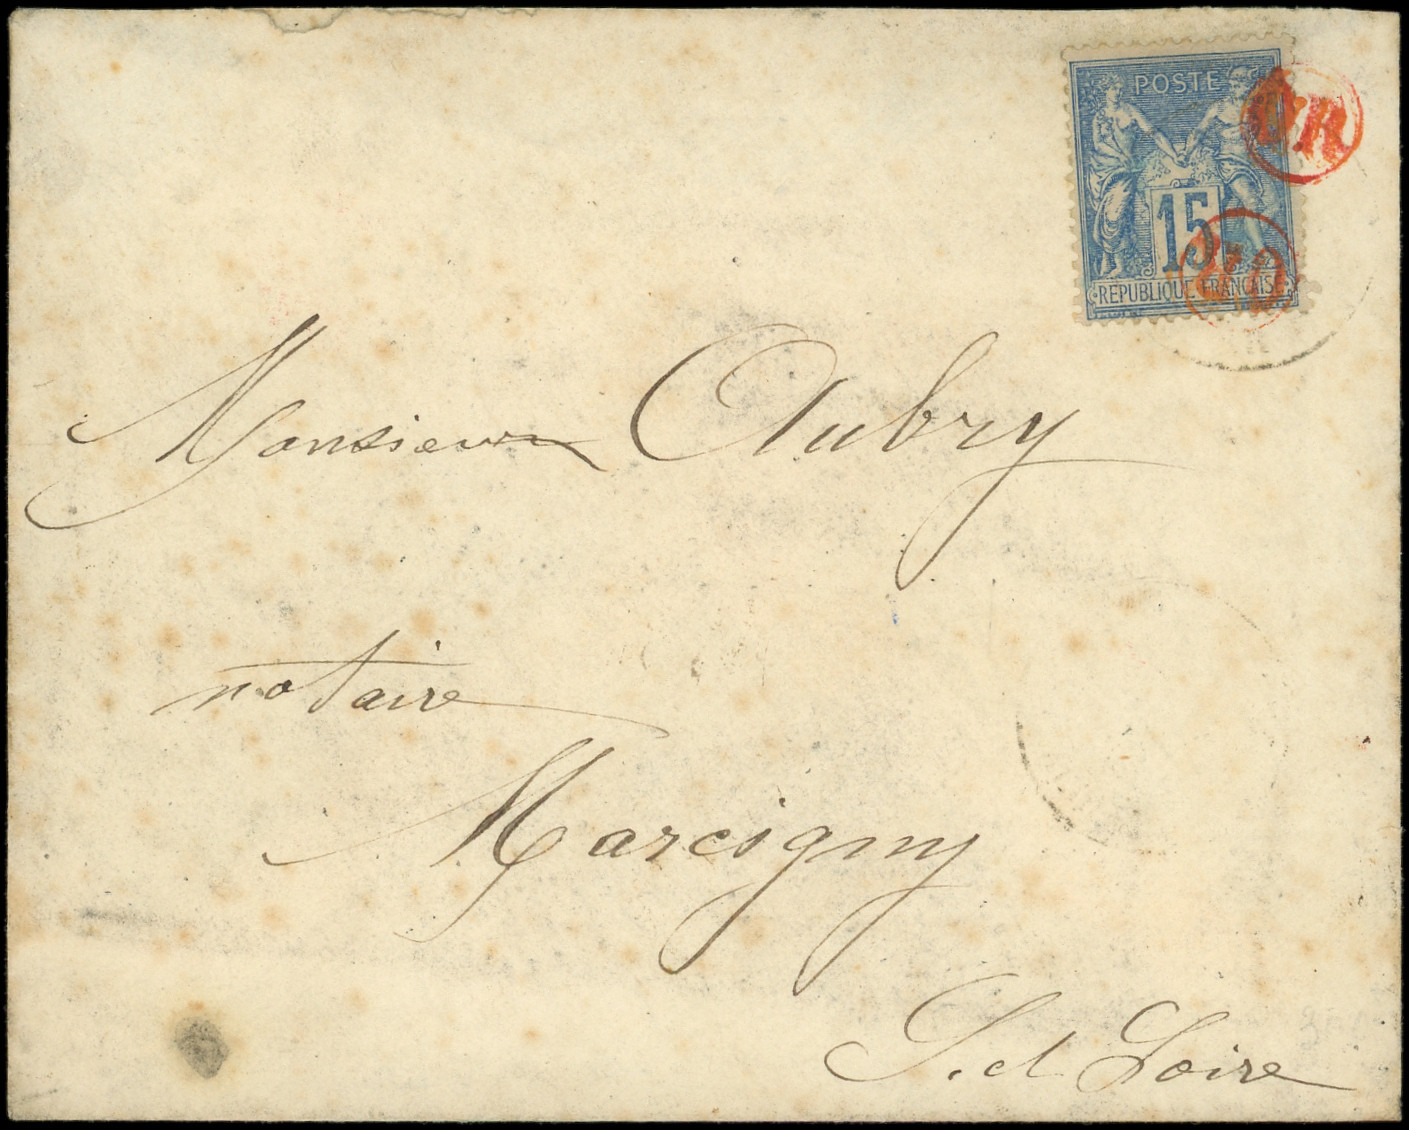 POSTE
15
RÉPUBLIQUE FRANÇAISE
OR
Monsieur Aubry
notaire
Marcigny
S. et Loire